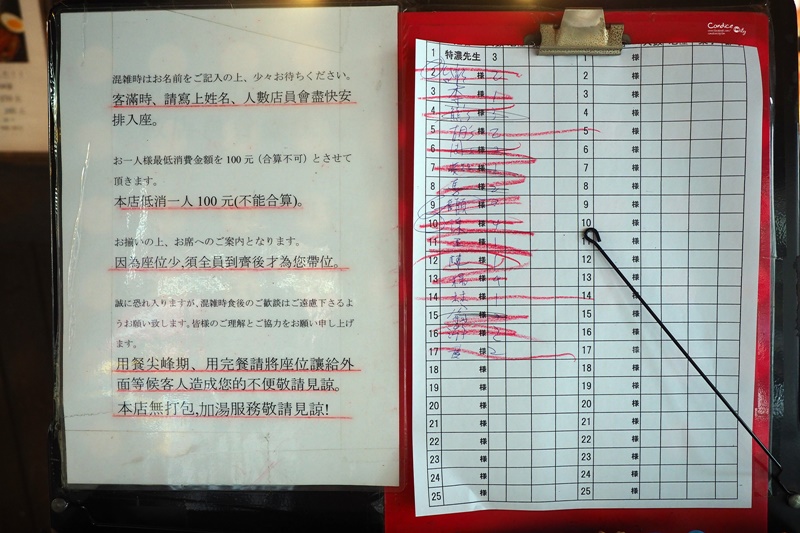 混雑時はお名前をご記入の上、少々お待ちください。
客滿時、請寫上姓名、人數店員會盡快安
排入座。
お一人様最低消費金額を 100 元（合算不可）とさせて
頂きます。
本店低消一人 100 元(不能合算)。
お揃いの上、お席へのご案内となります。
因為座位少,須全員到齊後才為您帶位。
誠に恐れ入りますが、混雑時食後のご歓談はご遠慮下さるよ
うお願い致します。皆様のご理解とご協力をお願い申し上げ
ます。
用餐尖峰期、用完餐請將座位讓給外
面等候客人造成您的不便敬請見諒。
本店無打包,加湯服務敬請見諒!
Candice
1 特濃先生 3 1 様
2 様 2 2 様
3 様 3 様
4 様 4 様
5 様 5 様
6 様 6 様
7 様 7 様
8 様 8 様
9 様 9 様
10 様 10 様
11 様 様
12 様 12 様
13 様 13 様
14 林 様 14 様
15 様 15 様
16 様 16 様
17 様 2 17 様
18 様 18 様
19 様 19 様
20 様 20 様
21 様 21 様
22 様 22 様
23 様 23 様
24 様 24 様
25 様 25 様